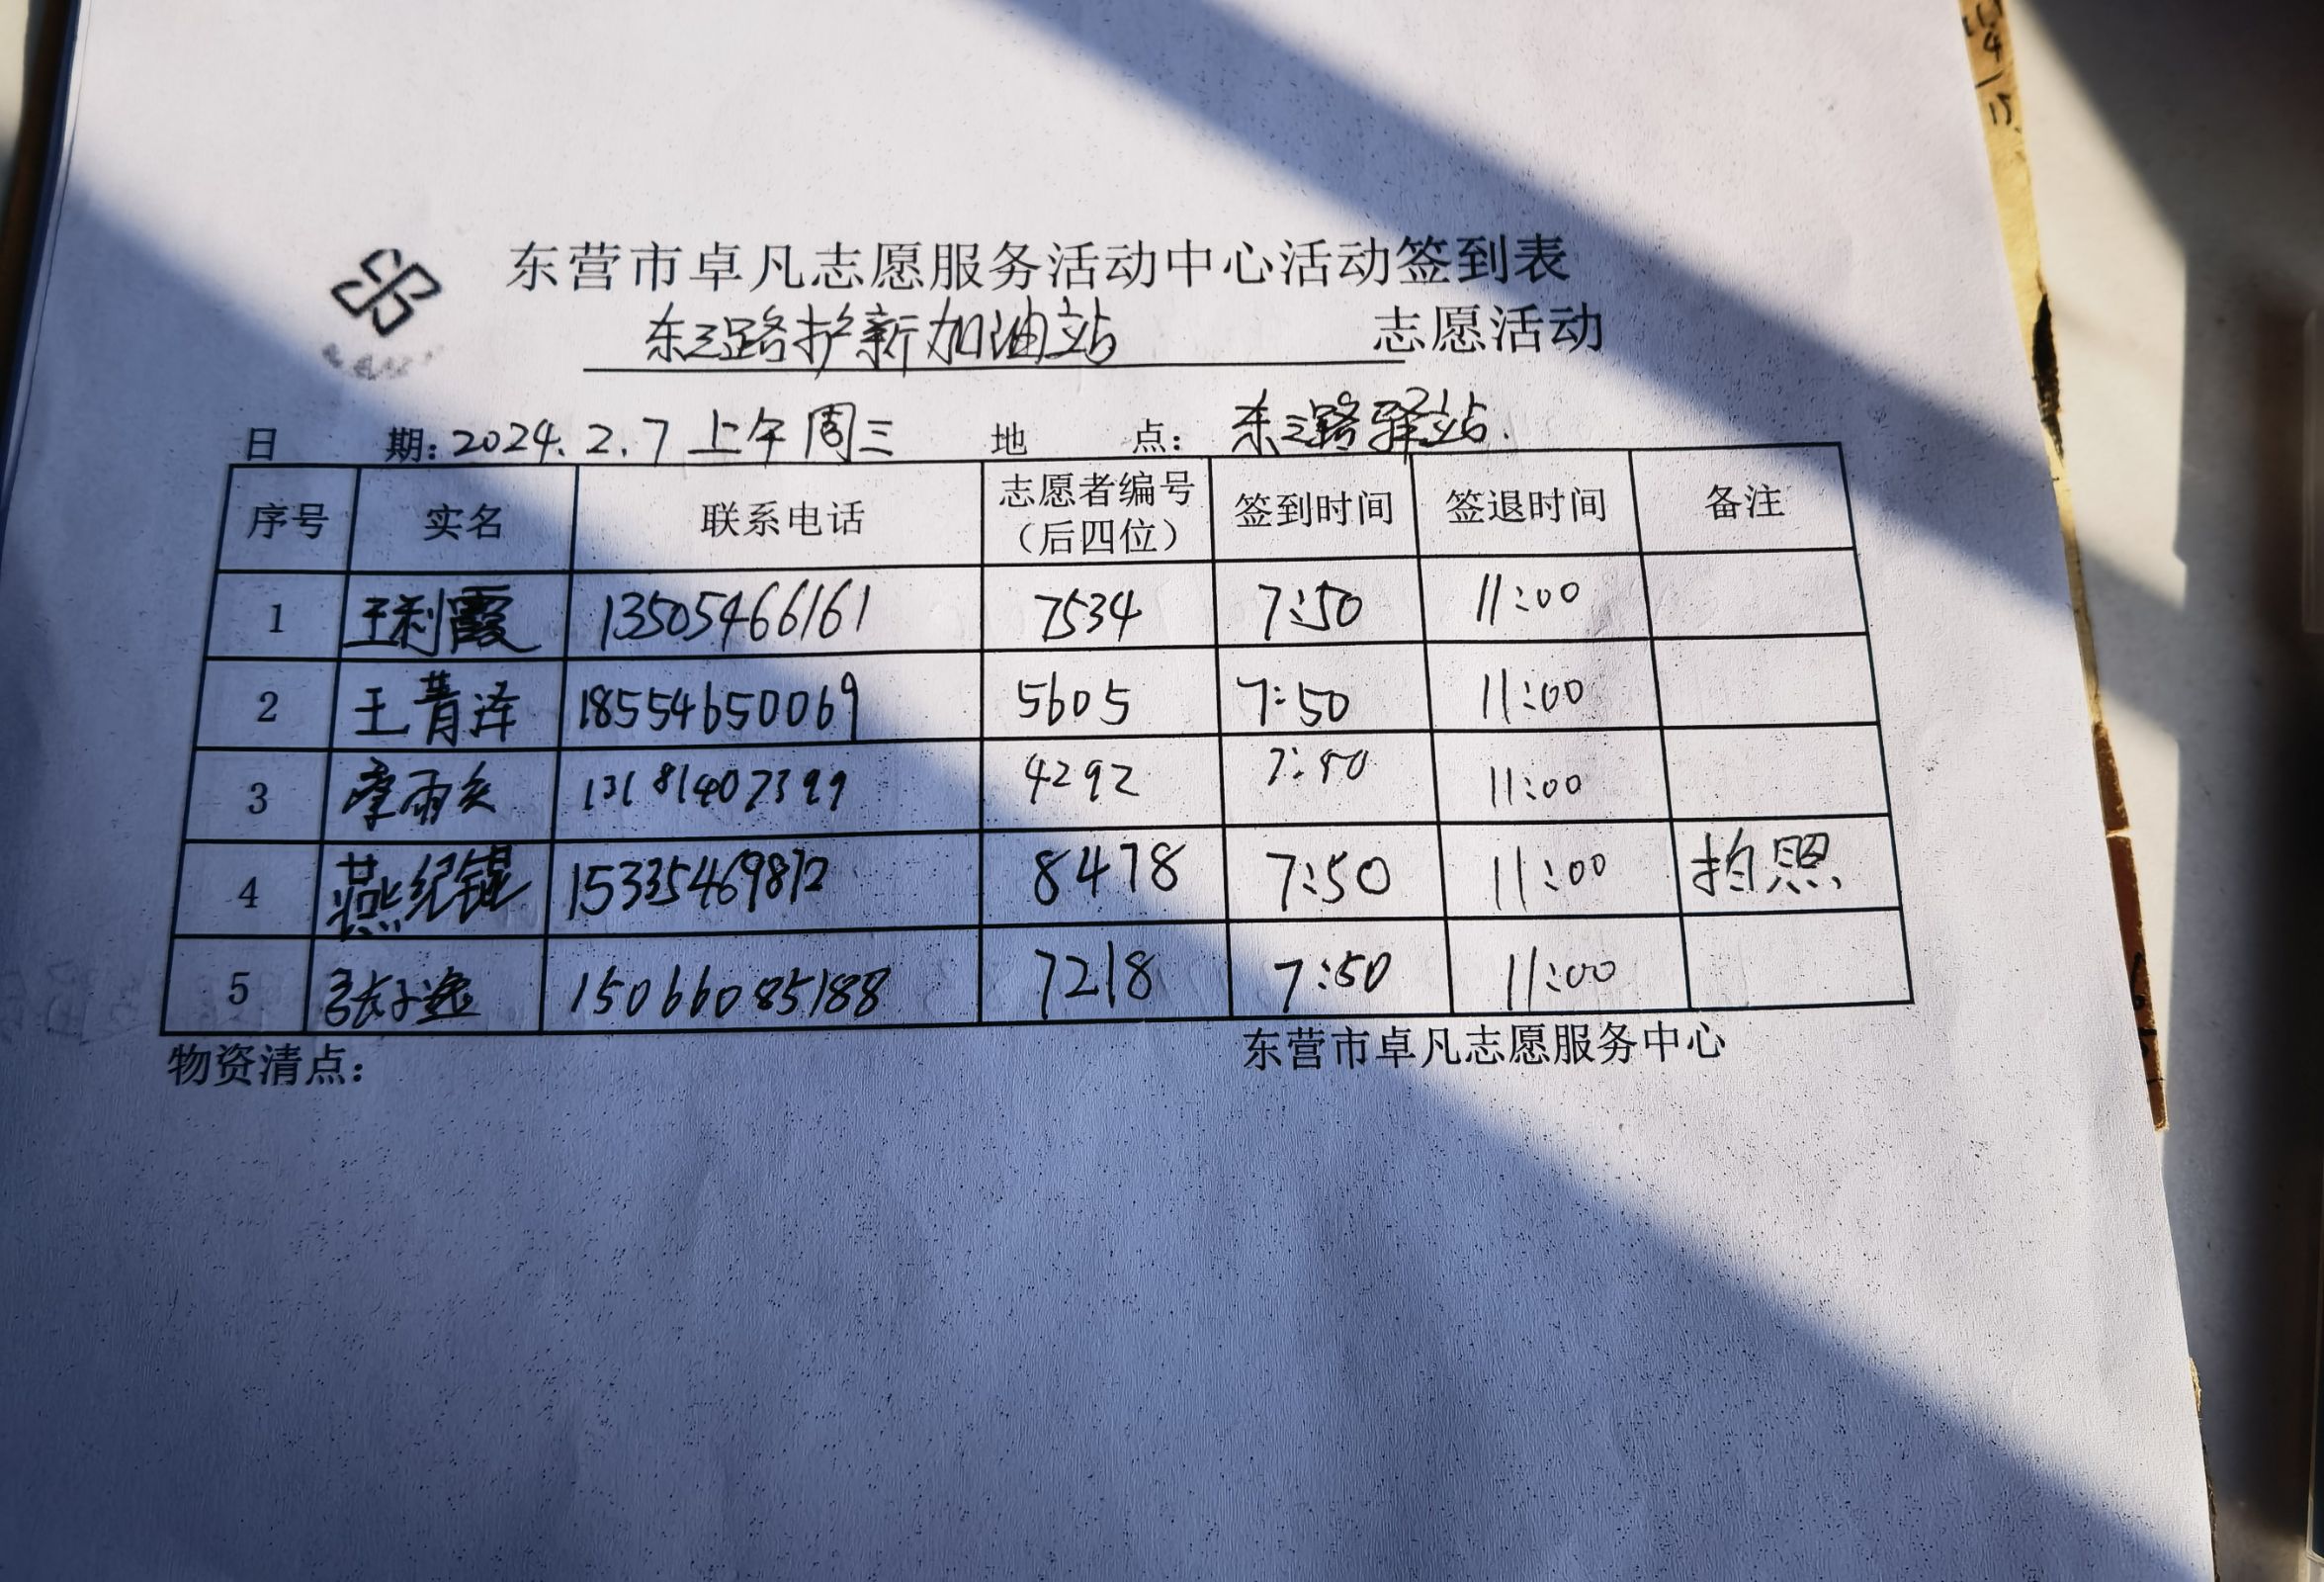 东营市卓凡志愿服务活动中心活动签到表
东三路护新加油站 志愿活动
日 期: 2024.2.7 上午 周三 地 点: 东三路驿站.
序号 实名 联系电话 志愿者编号（后四位） 签到时间 签退时间 备注
1 王利霞 13505466161 7534 7:50 11:00
2 王菁泽 18554650069 5605 7:50 11:00
3 13181407399 4292 7:50 11:00
4 燕纪锟 15335469872 8478 7:50 11:00 拍照
5 张子逸 15066085188 7218 7:50 11:00
物资清点: 东营市卓凡志愿服务中心